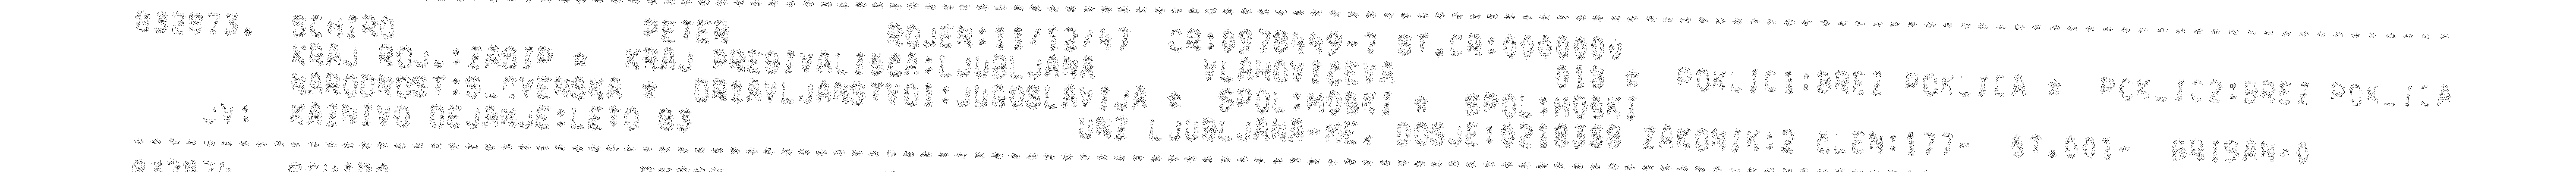 032073. SCHIRO PETER ROJEN:11/12/47 CR:0978449-7 ST.CR:0000000
KRAJ ROJ.:IABIP * KRAJ PREBIVALISCA:LJUBLJANA VLAHOVICEVA 018 * POKLIC1:BREZ POKLICA * POKLIC2:BREZ POKLICA
NARODNOST:SLOVENSKA * DRZAVLJANSTVO1:JUGOSLAVIJA * SPOL:MOSKI * SPOL:MOSKI
JV: KAZNIVO DEJANJE:LETO 83 UNZ LJUBLJANA-ME. DOSJE:0218388 ZAKONIK:2 CLEN:177- ST.001- BRISAN-0